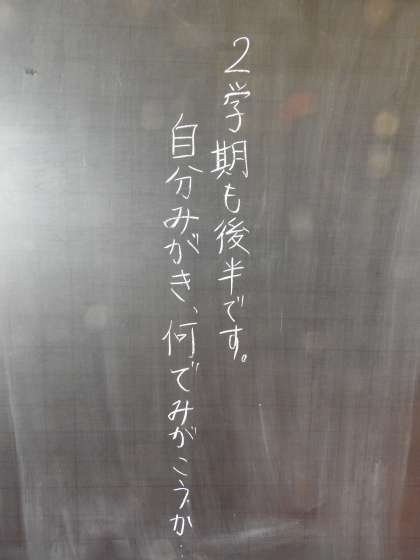 2学期も後半です。
自分みがき、何でみがこうか…